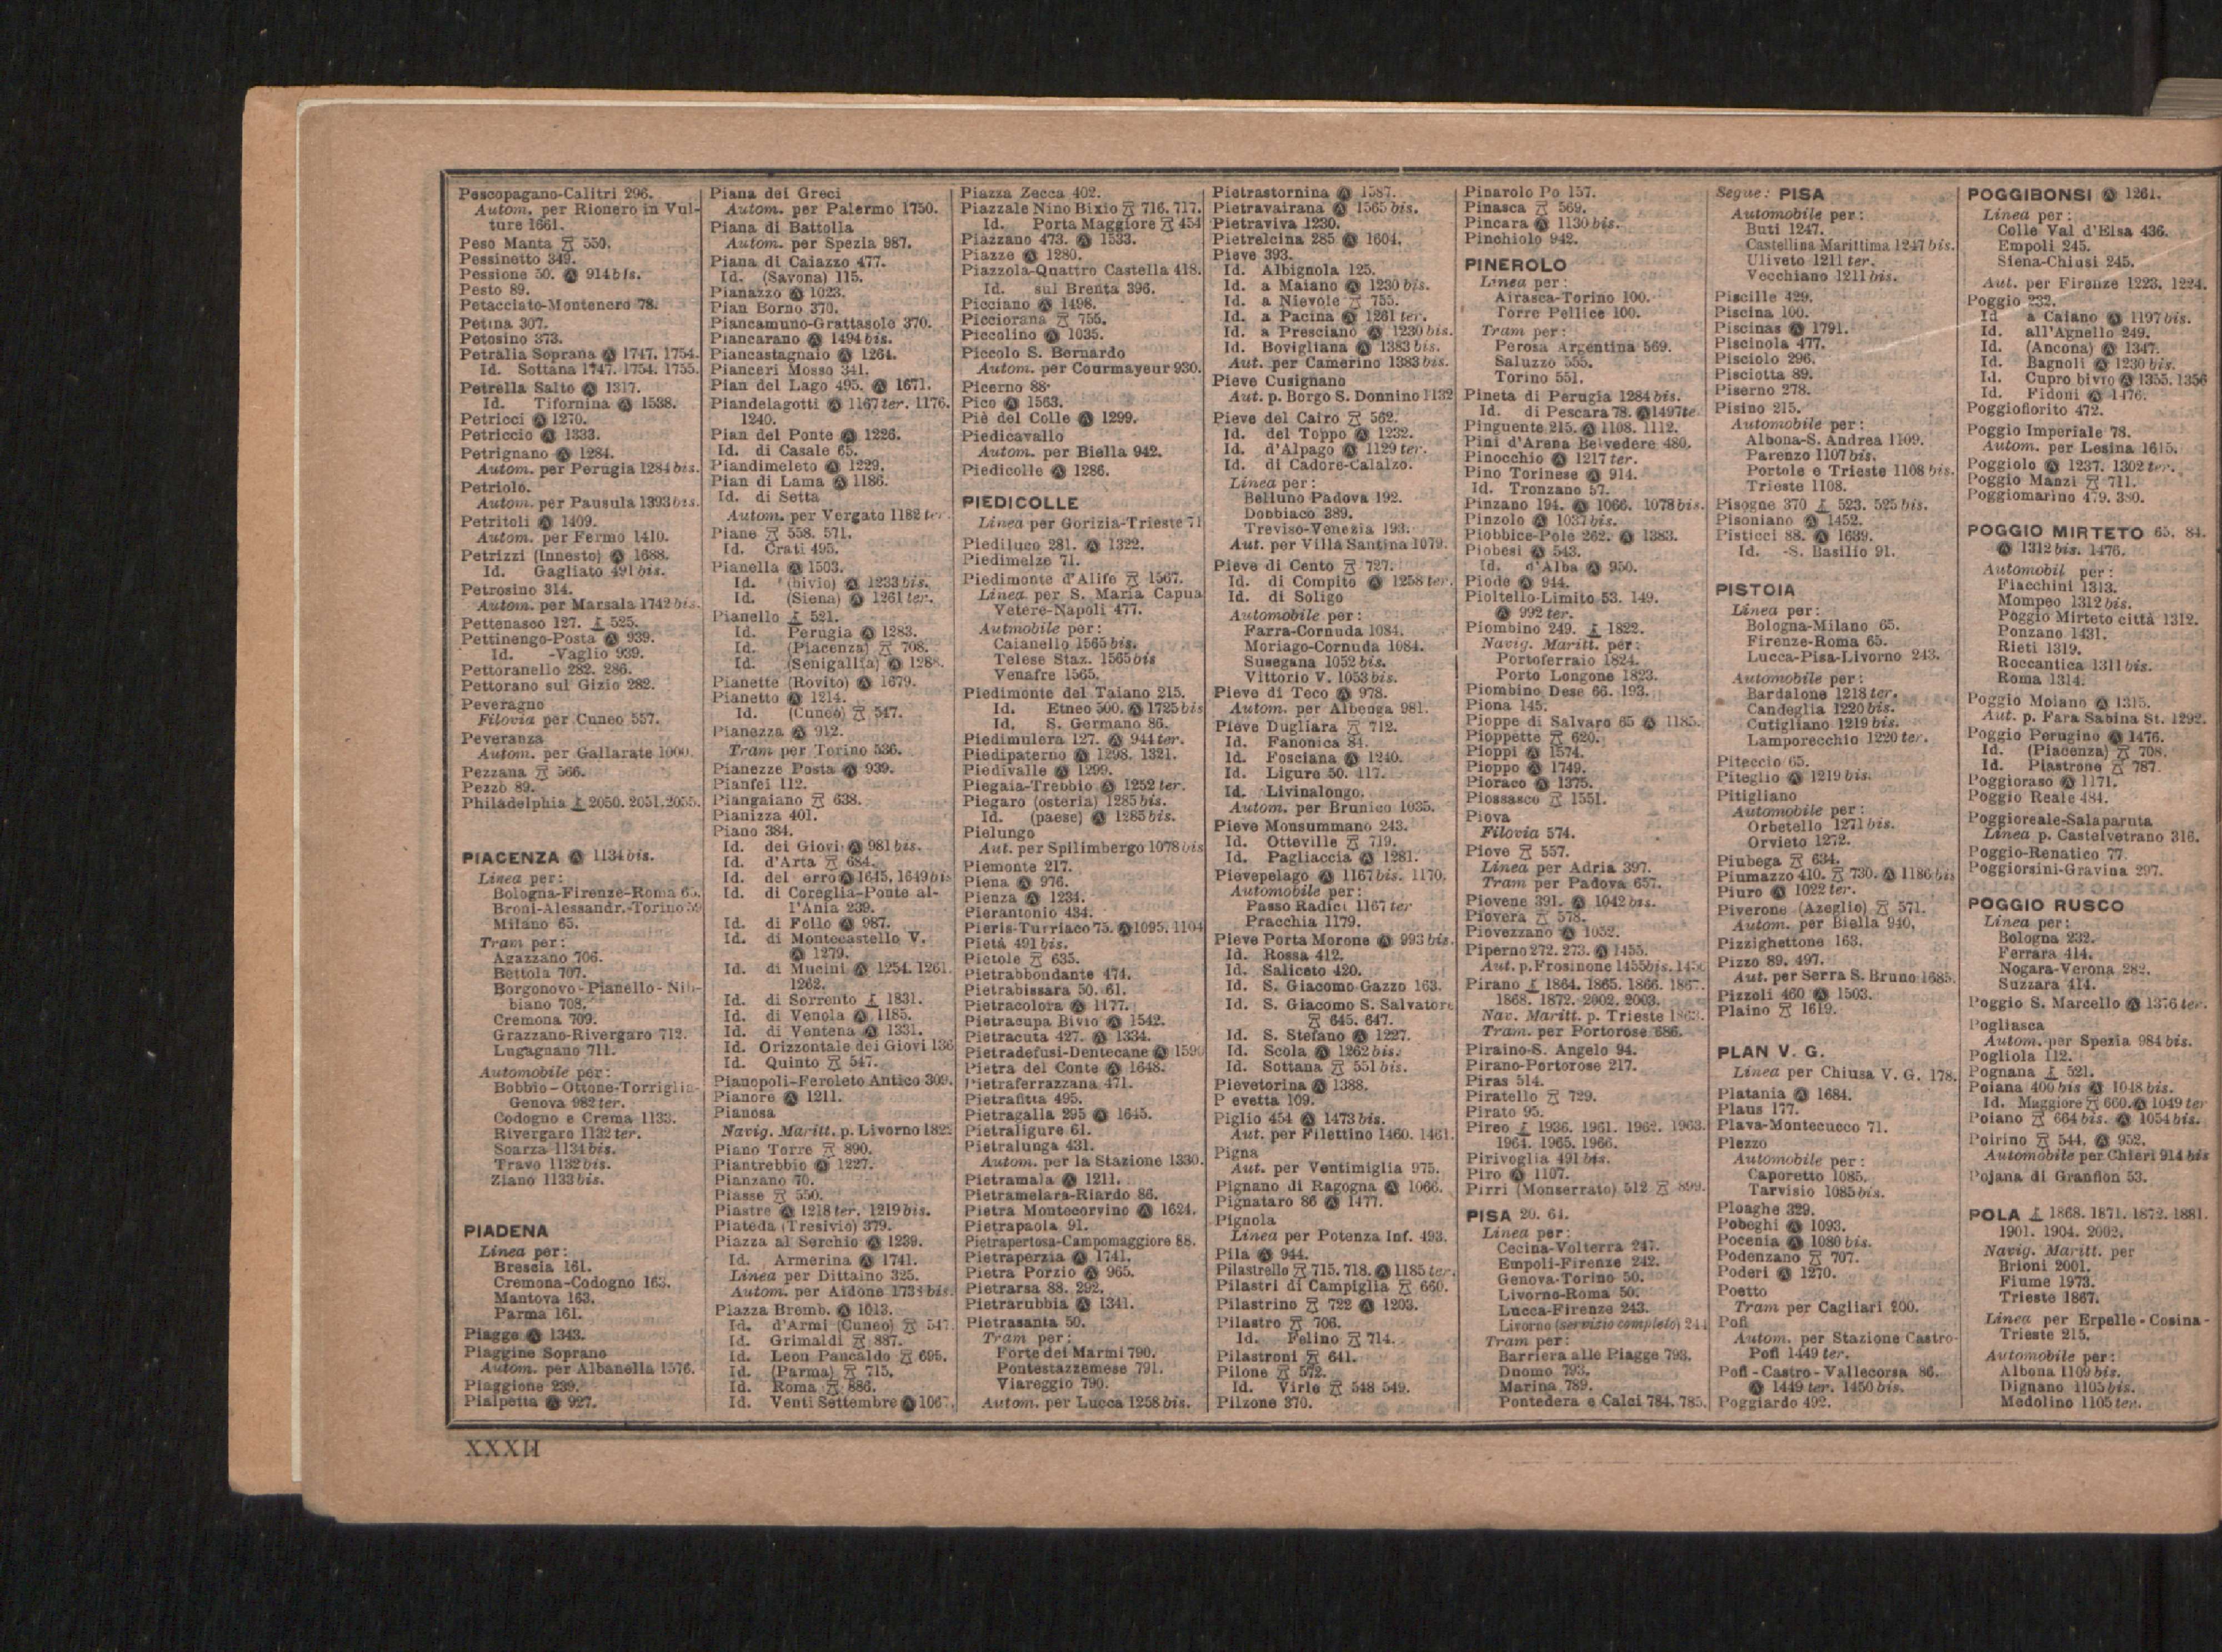 Pescopagano-Calitri 296.
Autom. per Rionero in Vul-
ture 1661.
Peso Manta 550.
Pessinetto 349.
Pessione 50. Ⓐ 914 bis.
Pesto 89.
Petacciato-Montenero 78.
Petina 307.
Petosino 373.
Petralia Soprana Ⓐ 1747. 1754.
Id. Sottana 1747. 1754. 1755.
Petrella Salto Ⓐ 1317.
Id. Tifernina Ⓐ 1538.
Petricci Ⓐ 1270.
Petriccio Ⓐ 1333.
Petrignano Ⓐ 1284.
Autom. per Perugia 1284 bis.
Petriolo.
Autom. per Pausula 1393 bis.
Petritoli Ⓐ 1409.
Autom. per Fermo 1410.
Petrizzi (Innesto) Ⓐ 1688.
Id. Gagliato 491 bis.
Petrosino 314.
Autom. per Marsala 1742 bis.
Pettenasco 127. 525.
Pettinengo-Posta Ⓐ 939.
Id. -Vaglio 939.
Pettoranello 282. 286.
Pettorano sul Gizio 282.
Peveragno
Filovia per Cuneo 557.
Peveranza
Autom. per Gallarate 1000.
Pezzana 566.
Pezzo 89.
Philadelphia 2050. 2051. 2055.
PIACENZA Ⓐ 1134 bis.
Linea per:
Bologna-Firenze-Roma 65.
Broni-Alessandr.-Torino 59
Milano 65.
Tram per:
Agazzano 706.
Bettola 707.
Borgonovo-Pianello-Nib-
biano 708.
Cremona 709.
Grazzano-Rivergaro 712.
Lugagnano 711.
Automobile per:
Bobbio-Ottone-Torriglia-
Genova 982 ter.
Codogno e Crema 1133.
Rivergaro 1132 ter.
Scarza 1134 bis.
Travo 1132 bis.
Ziano 1133 bis.
PIADENA
Linea per:
Brescia 161.
Cremona-Codogno 163.
Mantova 163.
Parma 161.
Piagge Ⓐ 1343.
Piaggine Soprano
Autom. per Albanella 1576.
Piaggione 239.
Pialpetta Ⓐ 927.
Piana dei Greci
Autom. per Palermo 1750.
Piana di Battolla
Autom. per Spezia 987.
Piana di Caiazzo 477.
Id. (Savona) 115.
Pianazzo Ⓐ 1023.
Pian Borno 370.
Piancamuno-Grattasole 370.
Piancarano Ⓐ 1494 bis.
Piancastagnaio Ⓐ 1264.
Pianceri Mosso 341.
Pian del Lago 495. Ⓐ 1671.
Piandelagotti Ⓐ 1167 ter. 1176.
1240.
Pian del Ponte Ⓐ 1226.
Id. di Casale 65.
Piandimeleto Ⓐ 1229.
Pian di Lama Ⓐ 1186.
Id. di Setta
Autom. per Vergato 1182 ter.
Piane 558. 571.
Id. Crati 495.
Pianella Ⓐ 1503.
Id. (bivio) Ⓐ 1233 bis.
Id. (Siena) Ⓐ 1261 ter.
Pianello 521.
Id. Perugia Ⓐ 1283.
Id. (Piacenza) 708.
Id. (Senigallia) Ⓐ 1288.
Pianette (Rovito) Ⓐ 1679.
Pianetto Ⓐ 1214.
Id. (Cuneo) 547.
Pianezza Ⓐ 912.
Tram per Torino 536.
Pianezze Posta Ⓐ 939.
Pianfei 112.
Piangaiano 638.
Pianizza 401.
Piano 384.
Id. dei Giovi Ⓐ 981 bis.
Id. d'Arta 684.
Id. del erro Ⓐ 1645. 1649 bis
Id. di Coreglia-Ponte al-
l'Ania 239.
Id. di Follo Ⓐ 987.
Id. di Montecastello V.
Ⓐ 1279.
Id. di Mucini Ⓐ 1254. 1261.
1262.
Id. di Sorrento 1831.
Id. di Venola Ⓐ 1185.
Id. di Ventena Ⓐ 1331.
Id. Orizzontale dei Giovi 136
Id. Quinto 547.
Pianopoli-Feroleto Antico 309.
Pianore Ⓐ 1211.
Pianosa
Navig. Maritt. p. Livorno 1822
Piano Torre 890.
Piantrebbio Ⓐ 1227.
Pianzano 70.
Piasse 550.
Piastre Ⓐ 1218 ter. 1219 bis.
Piateda (Tresivio) 379.
Piazza al Serchio Ⓐ 1239.
Id. Armerina Ⓐ 1741.
Linea per Dittaino 325.
Autom. per Aidone 1733 bis.
Piazza Bremb. Ⓐ 1013.
Id. d'Armi (Cuneo) 547.
Id. Grimaldi 887.
Id. Leon Pancaldo 695.
Id. (Parma) 715.
Id. Roma 886.
Id. Venti Settembre Ⓐ 106
Piazza Zecca 402.
Piazzale Nino Bixio 716. 717.
Id. Porta Maggiore 454
Piazzano 473. Ⓐ 1533.
Piazze Ⓐ 1280.
Piazzola-Quattro Castella 418.
Id. sul Brenta 396.
Picciano Ⓐ 1498.
Picciorana 755.
Piccolino Ⓐ 1035.
Piccolo S. Bernardo
Autom. per Courmayeur 930.
Picerno 88.
Pico Ⓐ 1563.
Piè del Colle Ⓐ 1299.
Piedicavallo
Autom. per Biella 942.
Piedicolle Ⓐ 1286.
PIEDICOLLE
Linea per Gorizia-Trieste 71
Piediluco 281. Ⓐ 1322.
Piedimelze 71.
Piedimonte d'Alife 1567.
Linea per S. Maria Capua
Vetere-Napoli 477.
Autmobile per:
Caianello 1565 bis.
Telese Staz. 1565 bis
Venafre 1565.
Piedimonte del Taiano 215.
Id. Etneo 500. Ⓐ 1725 bis
Id. S. Germano 86.
Piedimulera 127. Ⓐ 944 ter.
Piedipaterno Ⓐ 1298. 1321.
Piedivalle Ⓐ 1299.
Piegaia-Trebbio Ⓐ 1252 ter.
Piegaro (osteria) 1285 bis.
Id. (paese) Ⓐ 1285 bis.
Pielungo
Aut. per Spilimbergo 1078 bis
Piemonte 217.
Piena Ⓐ 976.
Pienza Ⓐ 1234.
Pierantonio 434.
Pieris-Turriaco 75. Ⓐ 1095. 1104
Pietà 491 bis.
Pietole 635.
Pietrabbondante 474.
Pietrabissara 50. 61.
Pietracolora Ⓐ 1177.
Pietracupa Bivio Ⓐ 1542.
Pietracuta 427. Ⓐ 1334.
Pietradefusi-Dentecane Ⓐ 1590
Pietra del Conte Ⓐ 1648.
Pietraferrazzana 471.
Pietrafitta 495.
Pietragalla 295 Ⓐ 1645.
Pietraligure 61.
Pietralunga 431.
Autom. per la Stazione 1330.
Pietramala Ⓐ 1211.
Pietramelara-Riardo 86.
Pietra Montecorvino Ⓐ 1624.
Pietrapaola 91.
Pietrapertosa-Campomaggiore 88.
Pietraperzia Ⓐ 1741.
Pietra Porzio Ⓐ 965.
Pietrarsa 88. 292.
Pietrarubbia Ⓐ 1341.
Pietrasanta 50.
Tram per:
Forte dei Marmi 790.
Pontestazzemese 791.
Viareggio 790.
Autom. per Lucca 1258 bis.
Pietrastornina Ⓐ 1587.
Pietravairana Ⓐ 1565 bis.
Pietraviva 1230.
Pietrelcina 285 Ⓐ 1604.
Pieve 393.
Id. Albignola 125.
Id. a Maiano Ⓐ 1230 bis.
Id. a Nievole 755.
Id. a Pacina Ⓐ 1261 ter.
Id. a Presciano Ⓐ 1230 bis.
Id. Bovigliana Ⓐ 1383 bis.
Aut. per Camerino 1383 bis.
Pieve Cusignano
Aut. p. Borgo S. Donnino 1132
Pieve del Cairo 562.
Id. del Toppo Ⓐ 1232.
Id. d'Alpago Ⓐ 1129 ter.
Id. di Cadore-Calalzo.
Linea per:
Belluno Padova 192.
Dobbiaco 389.
Treviso-Venezia 193.
Aut. per Villa Santina 1079.
Pieve di Cento 727.
Id. di Compito Ⓐ 1258 ter.
Id. di Soligo
Automobile per:
Farra-Cornuda 1084.
Moriago-Cornuda 1084.
Susegana 1052 bis.
Vittorio V. 1053 bis.
Pieve di Teco Ⓐ 978.
Autom. per Albenga 981.
Pieve Dugliara 712.
Id. Fanonica 84.
Id. Fosciana Ⓐ 1240.
Id. Ligure 50. 117.
Id. Livinalongo.
Autom. per Brunico 1035.
Pieve Monsummano 243.
Id. Otteville 719.
Id. Pagliaccia Ⓐ 1281.
Pievepelago Ⓐ 1167 bis. 1170.
Automobile per:
Passo Radici 1167 ter
Pracchia 1179.
Pieve Porta Morone Ⓐ 993 bis.
Id. Rossa 412.
Id. Saliceto 420.
Id. S. Giacomo Gazzo 163.
Id. S. Giacomo S. Salvatore
645. 647.
Id. S. Stefano Ⓐ 1227.
Id. Scola Ⓐ 1262 bis.
Id. Sottana 551 bis.
Pievetorina Ⓐ 1388.
P evetta 109.
Piglio 454 Ⓐ 1473 bis.
Aut. per Filettino 1460. 1461.
Pigna
Aut. per Ventimiglia 975.
Pignano di Ragogna Ⓐ 1066.
Pignataro 86 Ⓐ 1477.
Pignola
Linea per Potenza Inf. 493.
Pila Ⓐ 944.
Pilastrello 715. 718. Ⓐ 1185 ter.
Pilastri di Campiglia 660.
Pilastrino 722 Ⓐ 1203.
Pilastro 706.
Id. Felino 714.
Pilastroni 641.
Pilone 572.
Id. Virle 548 549.
Pilzone 370.
Pinarolo Po 157.
Pinasca 569.
Pincara Ⓐ 1130 bis.
Pinchiolo 942.
PINEROLO
Linea per:
Airasca-Torino 100.
Torre Pellice 100.
Tram per:
Perosa Argentina 569.
Saluzzo 555.
Torino 551.
Pineta di Perugia 1284 bis.
Id. di Pescara 78. Ⓐ 1497 te
Pinguente 215. Ⓐ 1108. 1112.
Pini d'Arena Belvedere 480.
Pinocchio Ⓐ 1217 ter.
Pino Torinese Ⓐ 914.
Id. Tronzano 57.
Pinzano 194. Ⓐ 1066. 1078 bis.
Pinzolo Ⓐ 1037 bis.
Piobbico-Pole 262. Ⓐ 1383.
Piobesi Ⓐ 543.
Id. d'Alba Ⓐ 950.
Piode Ⓐ 944.
Pioltello-Limito 53. 149.
Ⓐ 992 ter.
Piombino 249. 1822.
Navig. Maritt. per:
Portoferraio 1824.
Porto Longone 1823.
Piombino Dese 66. 193.
Piona 145.
Pioppe di Salvaro 65 Ⓐ 1185.
Pioppette 620.
Pioppi Ⓐ 1574.
Pioppo Ⓐ 1749.
Pioraco Ⓐ 1375.
Piossasco 1551.
Piova
Filovia 574.
Piove 557.
Linea per Adria 397.
Tram per Padova 657.
Piovene 391. Ⓐ 1042 bis.
Piovera 578.
Piovezzano Ⓐ 1052.
Piperno 272. 273. Ⓐ 1455.
Aut. p. Frosinone 1455 bis. 1456
Pirano 1864. 1865. 1866. 1867.
1868. 1872. 2002. 2003.
Nav. Maritt. p. Trieste 1863.
Tram. per Portorose 686.
Piraino-S. Angelo 94.
Pirano-Portorose 217.
Piras 514.
Piratello 729.
Pirato 95.
Pireo 1936. 1961. 1962. 1963.
1964. 1965. 1966.
Pirivoglia 491 bis.
Piro Ⓐ 1107.
Pirri (Monserrato) 512 899.
PISA 20. 64.
Linea per:
Cecina-Volterra 247.
Empoli-Firenze 242.
Genova-Torino 50.
Livorno-Roma 50.
Lucca-Firenze 243.
Livorno (servizio completo) 244
Tram per:
Barriera alle Piagge 793.
Duomo 793.
Marina 789.
Pontedera e Calci 784. 785.
Segue: PISA
Automobile per:
Buti 1247.
Castellina Marittima 1247 bis.
Uliveto 1211 ter.
Vecchiano 1211 bis.
Piscille 429.
Piscina 100.
Piscinas Ⓐ 1791.
Piscinola 477.
Pisciolo 296.
Pisciotta 89.
Piserno 278.
Pisino 215.
Automobile per:
Albona-S. Andrea 1109.
Parenzo 1107 bis.
Portole e Trieste 1108 bis.
Trieste 1108.
Pisogne 370 523. 525 bis.
Pisoniano Ⓐ 1452.
Pisticci 88. Ⓐ 1639.
Id. -S. Basilio 91.
PISTOIA
Linea per:
Bologna-Milano 65.
Firenze-Roma 65.
Lucca-Pisa-Livorno 243.
Automobile per:
Bardalone 1218 ter.
Candeglia 1220 bis.
Cutigliano 1219 bis.
Lamporecchio 1220 ter.
Piteccio 65.
Piteglio Ⓐ 1219 bis.
Pitigliano
Automobile per:
Orbetello 1271 bis.
Orvieto 1272.
Piubega 634.
Piumazzo 410. 730. Ⓐ 1186 bis
Piuro Ⓐ 1022 ter.
Piverone (Azeglio) 571.
Autom. per Biella 940.
Pizzighettone 163.
Pizzo 89. 497.
Aut. per Serra S. Bruno 1685.
Pizzoli 460 Ⓐ 1503.
Plaino 1619.
PLAN V. G.
Linea per Chiusa V. G. 178.
Platania Ⓐ 1684.
Plaus 177.
Plava-Montecucco 71.
Plezzo
Automobile per:
Caporetto 1085.
Tarvisio 1085 bis.
Ploaghe 329.
Pobeghi Ⓐ 1093.
Pocenia Ⓐ 1080 bis.
Podenzano 707.
Poderi Ⓐ 1270.
Poetto
Tram per Cagliari 200.
Pofi
Autom. per Stazione Castro-
Pofi 1449 ter.
Pofi-Castro-Vallecorsa 86.
Ⓐ 1449 ter. 1450 bis.
Poggiardo 492.
POGGIBONSI Ⓐ 1261.
Linea per:
Colle Val d'Elsa 436.
Empoli 245.
Siena-Chiusi 245.
Aut. per Firenze 1223. 1224.
Poggio 232.
Id a Caiano Ⓐ 1197 bis.
Id. all'Agnello 249.
Id. (Ancona) Ⓐ 1347.
Id. Bagnoli Ⓐ 1230 bis.
Id. Cupro bivio Ⓐ 1355. 1356
Id. Fidoni Ⓐ 1476.
Poggiofiorito 472.
Poggio Imperiale 78.
Autom. per Lesina 1615.
Poggiolo Ⓐ 1237. 1302 ter.
Poggio Manzi 711.
Poggiomarino 479. 380.
POGGIO MIRTETO 65. 84.
Ⓐ 1312 bis. 1476.
Automobil per:
Fiacchini 1313.
Mompeo 1312 bis.
Poggio Mirteto città 1312.
Ponzano 1431.
Rieti 1319.
Roccantica 1311 bis.
Roma 1314.
Poggio Moiano Ⓐ 1315.
Aut. p. Fara Sabina St. 1292.
Poggio Perugino Ⓐ 1476.
Id. (Piacenza) 708.
Id. Piastrone 787.
Poggioraso Ⓐ 1171.
Poggio Reale 484.
Poggioreale-Salaparuta
Linea p. Castelvetrano 316.
Poggio-Renatico 77.
Poggiorsini-Gravina 297.
POGGIO RUSCO
Linea per:
Bologna 232.
Ferrara 414.
Nogara-Verona 282.
Suzzara 414.
Poggio S. Marcello Ⓐ 1376 ter.
Pogliasca
Autom. per Spezia 984 bis.
Pogliola 112.
Pognana 521.
Poiana 400 bis Ⓐ 1048 bis.
Id. Maggiore 660. Ⓐ 1049 ter
Poiano 664 bis. Ⓐ 1054 bis.
Poirino 544. Ⓐ 952.
Automobile per Chieri 914 bis
Pojana di Granfion 53.
POLA 1868. 1871. 1872. 1881.
1901. 1904. 2002.
Navig. Maritt. per
Brioni 2001.
Fiume 1973.
Trieste 1867.
Linea per Erpelle-Cosina-
Trieste 215.
Automobile per:
Albona 1109 bis.
Dignano 1105 bis.
Medolino 1105 ter.
XXXII